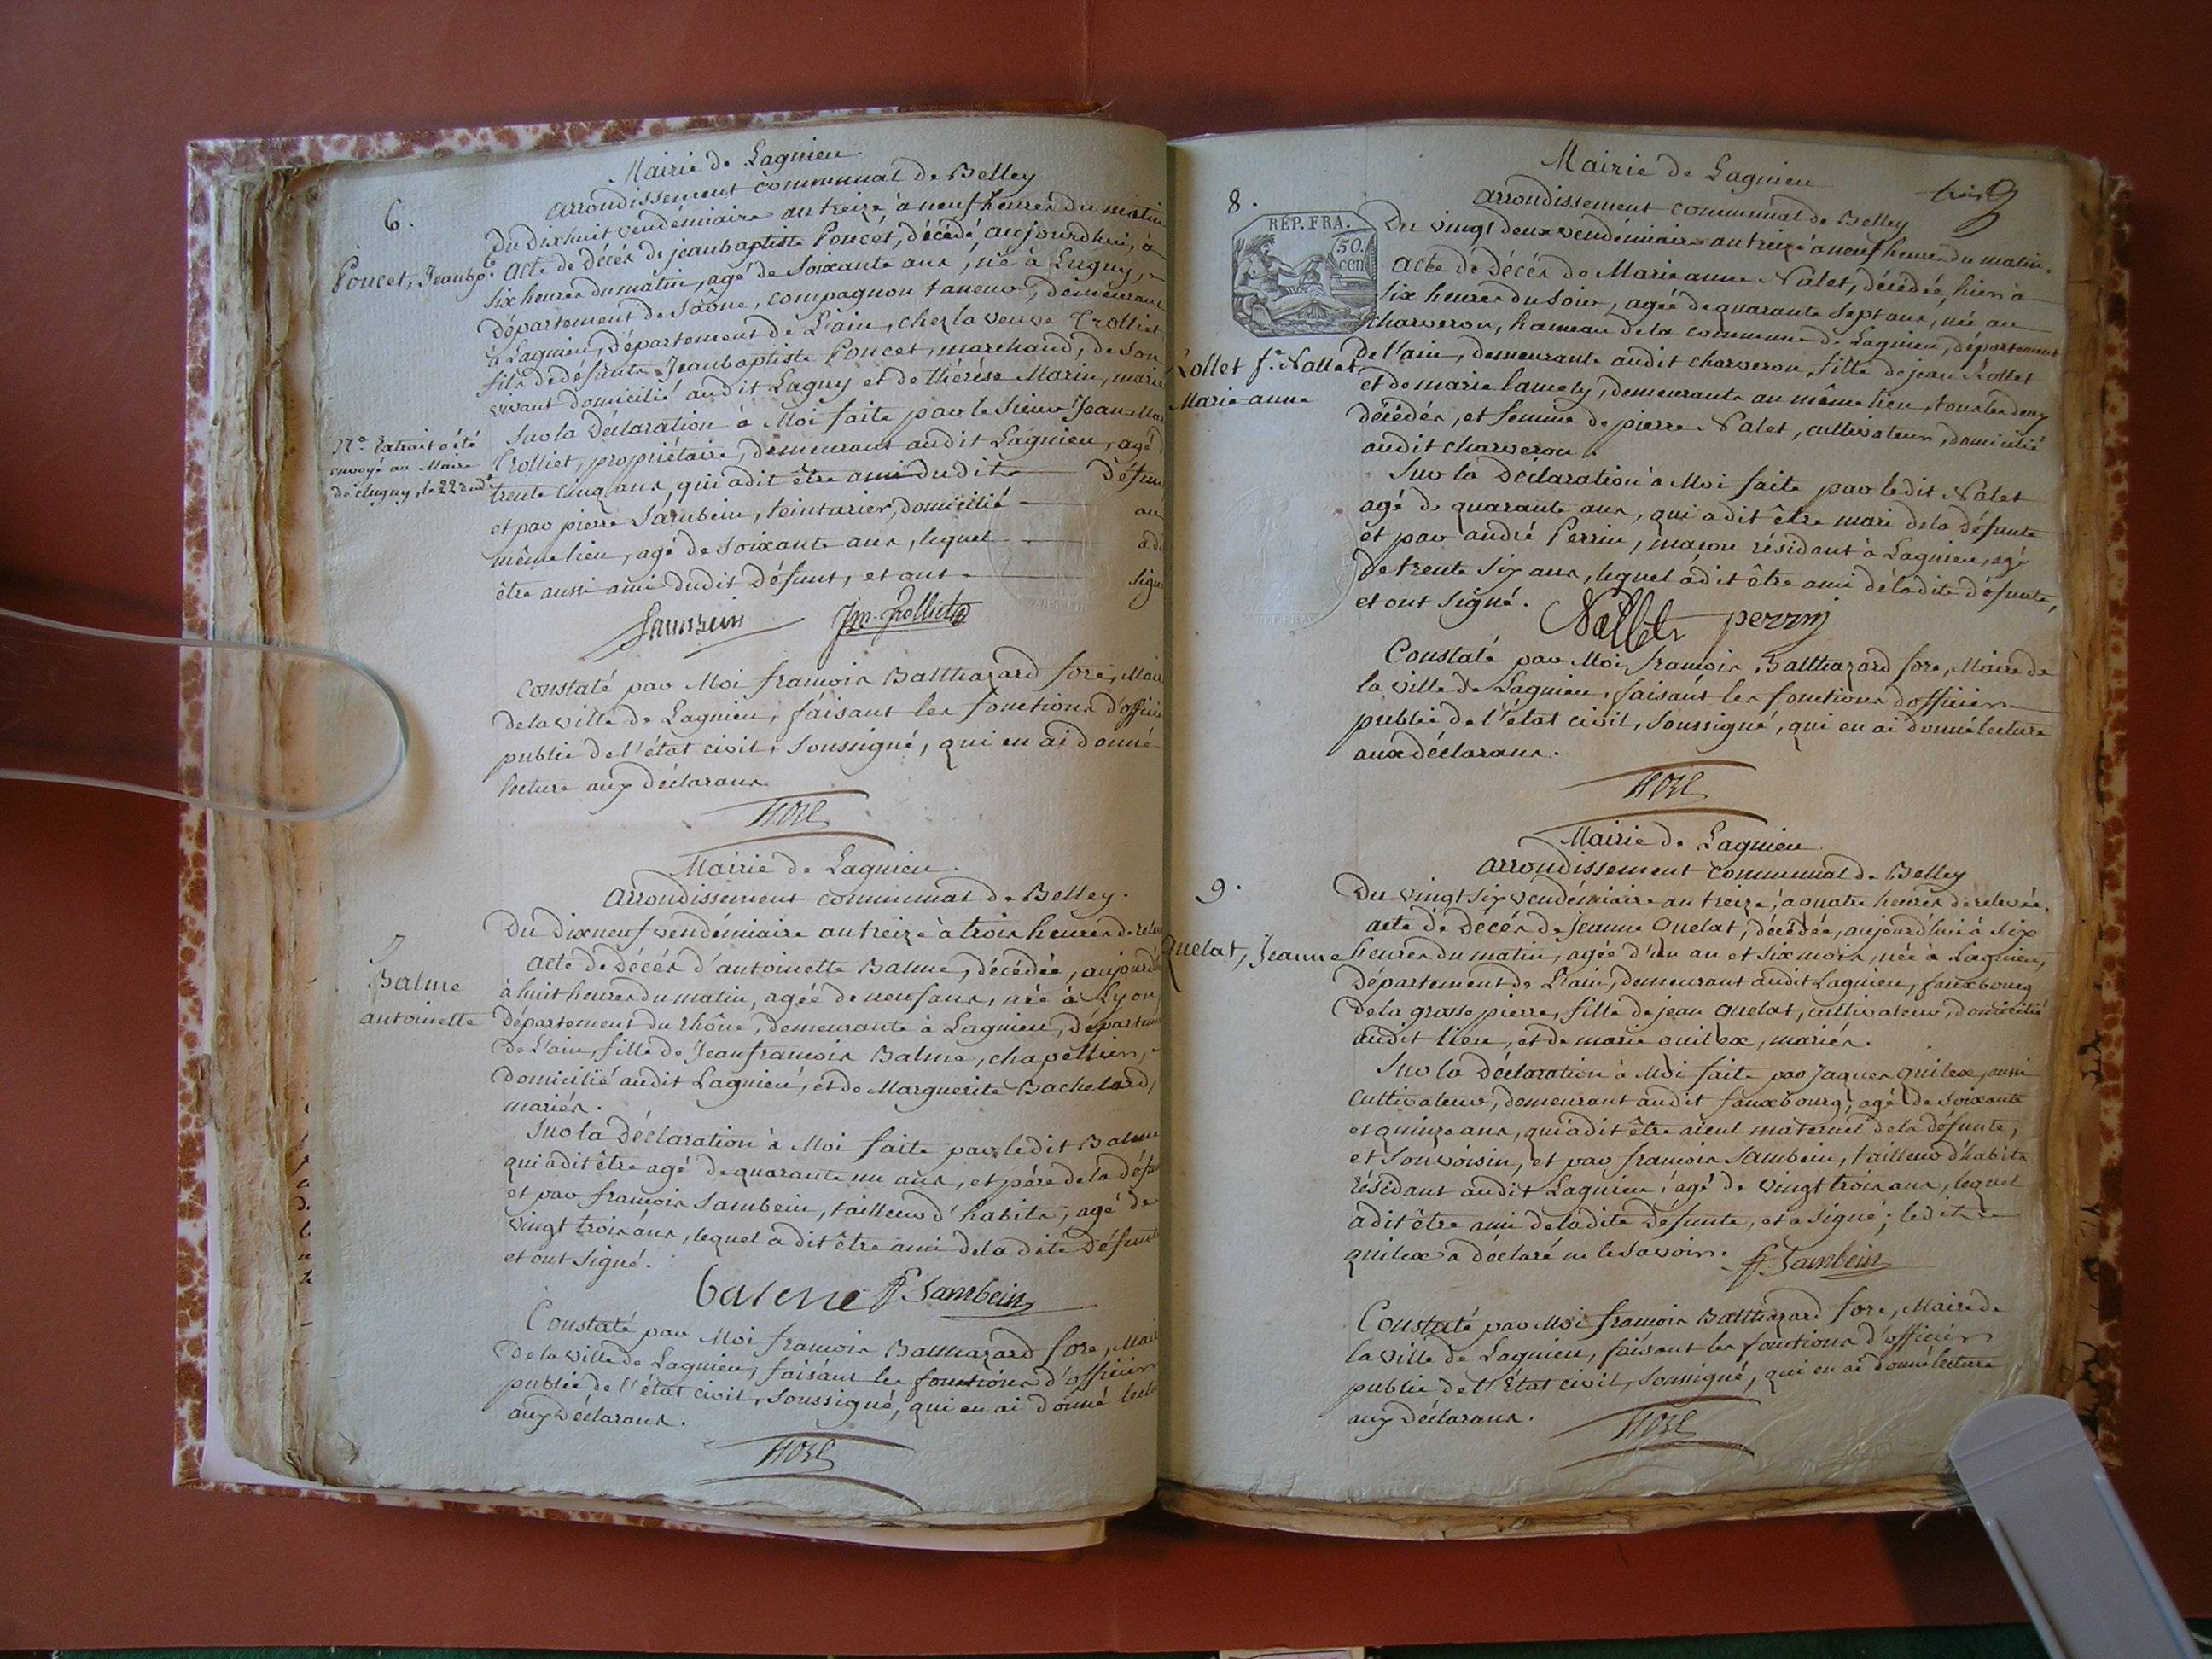 Mairie de Lagnieu
arrondissement communal de Belley
6.
Du dixhuit vendémiaire an treize à neuf heures du matin
Poncet, Jeanbpte.
acte de Décès de jeanbaptiste Poncet, décédé aujourdhui, à
six heures du matin, agé de soixante ans, né à Lugny,
Département de Saône, compagnon taneur, demeurant
à Lagnieu, Département de L'ain, chez la veuve Trolliet
fils de défunts Jeanbaptiste Poncet, marchand, de son
vivant domicilié audit Lugny et de thérèse Marin, marié
Sur la Déclaration à Moi faite par le sieur Jean Mar
Trolliet, propriétaire, demeurant audit Lagnieu, agé
Na. Extrait a été
envoyé au Maire
de Lugny, le 22 dud.
trente cinq ans, qui a dit être ami dudit Défun
et par pierre Sambein, teinturier, domicilié au
même lieu, agé de soixante ans, lequel a di
être aussi ami dudit Défunt, et ont sign
Sambein Jm. Trolliet
Constaté par Moi françois Balthazard fore, Mair
de la ville de Lagnieu, faisant les fonctions d'offici
public de l'état civil, soussigné, qui en ai donné
lecture aux déclarans
fore
Mairie de Lagnieu
arrondissement communal de Belley.
7
Du Dixneuf vendémiaire an treize à trois heures de rele
Balme
antoinette
acte de Décès d'antoinette Balme, décédée, aujourd
à huit heures du matin, agée de neuf ans, née à Lyon
Département du rhône, demeurante à Lagnieu, départem
de L'ain, fille de Jean françois Balme, chapellier,
domicilié audit Lagnieu, et de Marguerite Bachelard,
mariés.
Sur la Déclaration à Moi faite par ledit Balme
qui a dit être agé de quarante un ans, et père de la défu
et par françois Sambein, tailleur d'habits, agé de
vingt trois ans, lequel a dit être ami de la dite Défunt
et ont signé.
balme f Sambein
Constaté par Moi françois Balthazard fore, Mair
de la ville de Lagnieu, faisant les fonctions d'officier
public de l'état civil, soussigné, qui en ai donné lectu
aux Déclarans.
fore
Mairie de Lagnieu
trois
arrondissement communal de Belley
8.
RÉP. FRA.
50.
cen
Du vingt deux vendémiaire an treize à neuf heures du matin.
acte de Décès de Marie anne Nalet, décédée, hier à
six heures du soir, agée de quarante sept ans, née au
charveron, hameau de la commune de Lagnieu, département
Rollet fe. Nallet
Marie-anne
de l'ain, demeurante audit charveron, fille de jean Rollet
et de marie lamely, demeurants au même lieu, tous les deux
décédés, et femme de pierre Nalet, cultivateur, domicilié
audit charveron.
Sur la Déclaration à Moi faite par ledit Nalet
agé de quarante ans, qui a dit être mari de la défunte
et par andré Perrin, maçon résidant à Lagnieu, agé
de trente six ans, lequel a dit être ami de la dite défunte,
et ont signé. Nallet perrin
Constaté par Moi françois Balthazard fore, Maire de
la ville de Lagnieu, faisant les fonctions d'officier
public de l'état civil, soussigné, qui en ai donné lecture
aux déclarans.
fore
Mairie de Lagnieu
arrondissement communal de Belley
9.
Du vingt six vendémiaire an treize, à quatre heures de relevée.
acte de Décès de jeanne Quelat, décédée, aujourd'hui à six
Quelat, Jeanne
heures du matin, agée d'un an et six mois, née à Lagnieu,
Département de L'ain, demeurant audit Lagnieu, fauxbourg
de la grosse pierre, fille de jean quelat, cultivateur, domicilié
audit lieu, et de marie quilex, mariés.
Sur la Déclaration à Moi faite par Jaques quilex, aussi
cultivateur, demeurant audit fauxbourg, agé de soixante
et quinze ans, qui a dit être aieul maternel de la défunte,
et son voisin, et par françois Sambein, tailleur d'habits
résidant audit Lagnieu, agé de vingt trois ans, lequel
a dit être ami de la dite défunte, et a signé; ledit
quilex a déclaré ne le savoir. f Sambein
Constaté par Moi françois Balthazard fore, Maire de
la ville de Lagnieu, faisant les fonctions d'officier
public de l'Etat civil, soussigné, qui en ai donné lecture
aux Déclarans.
fore